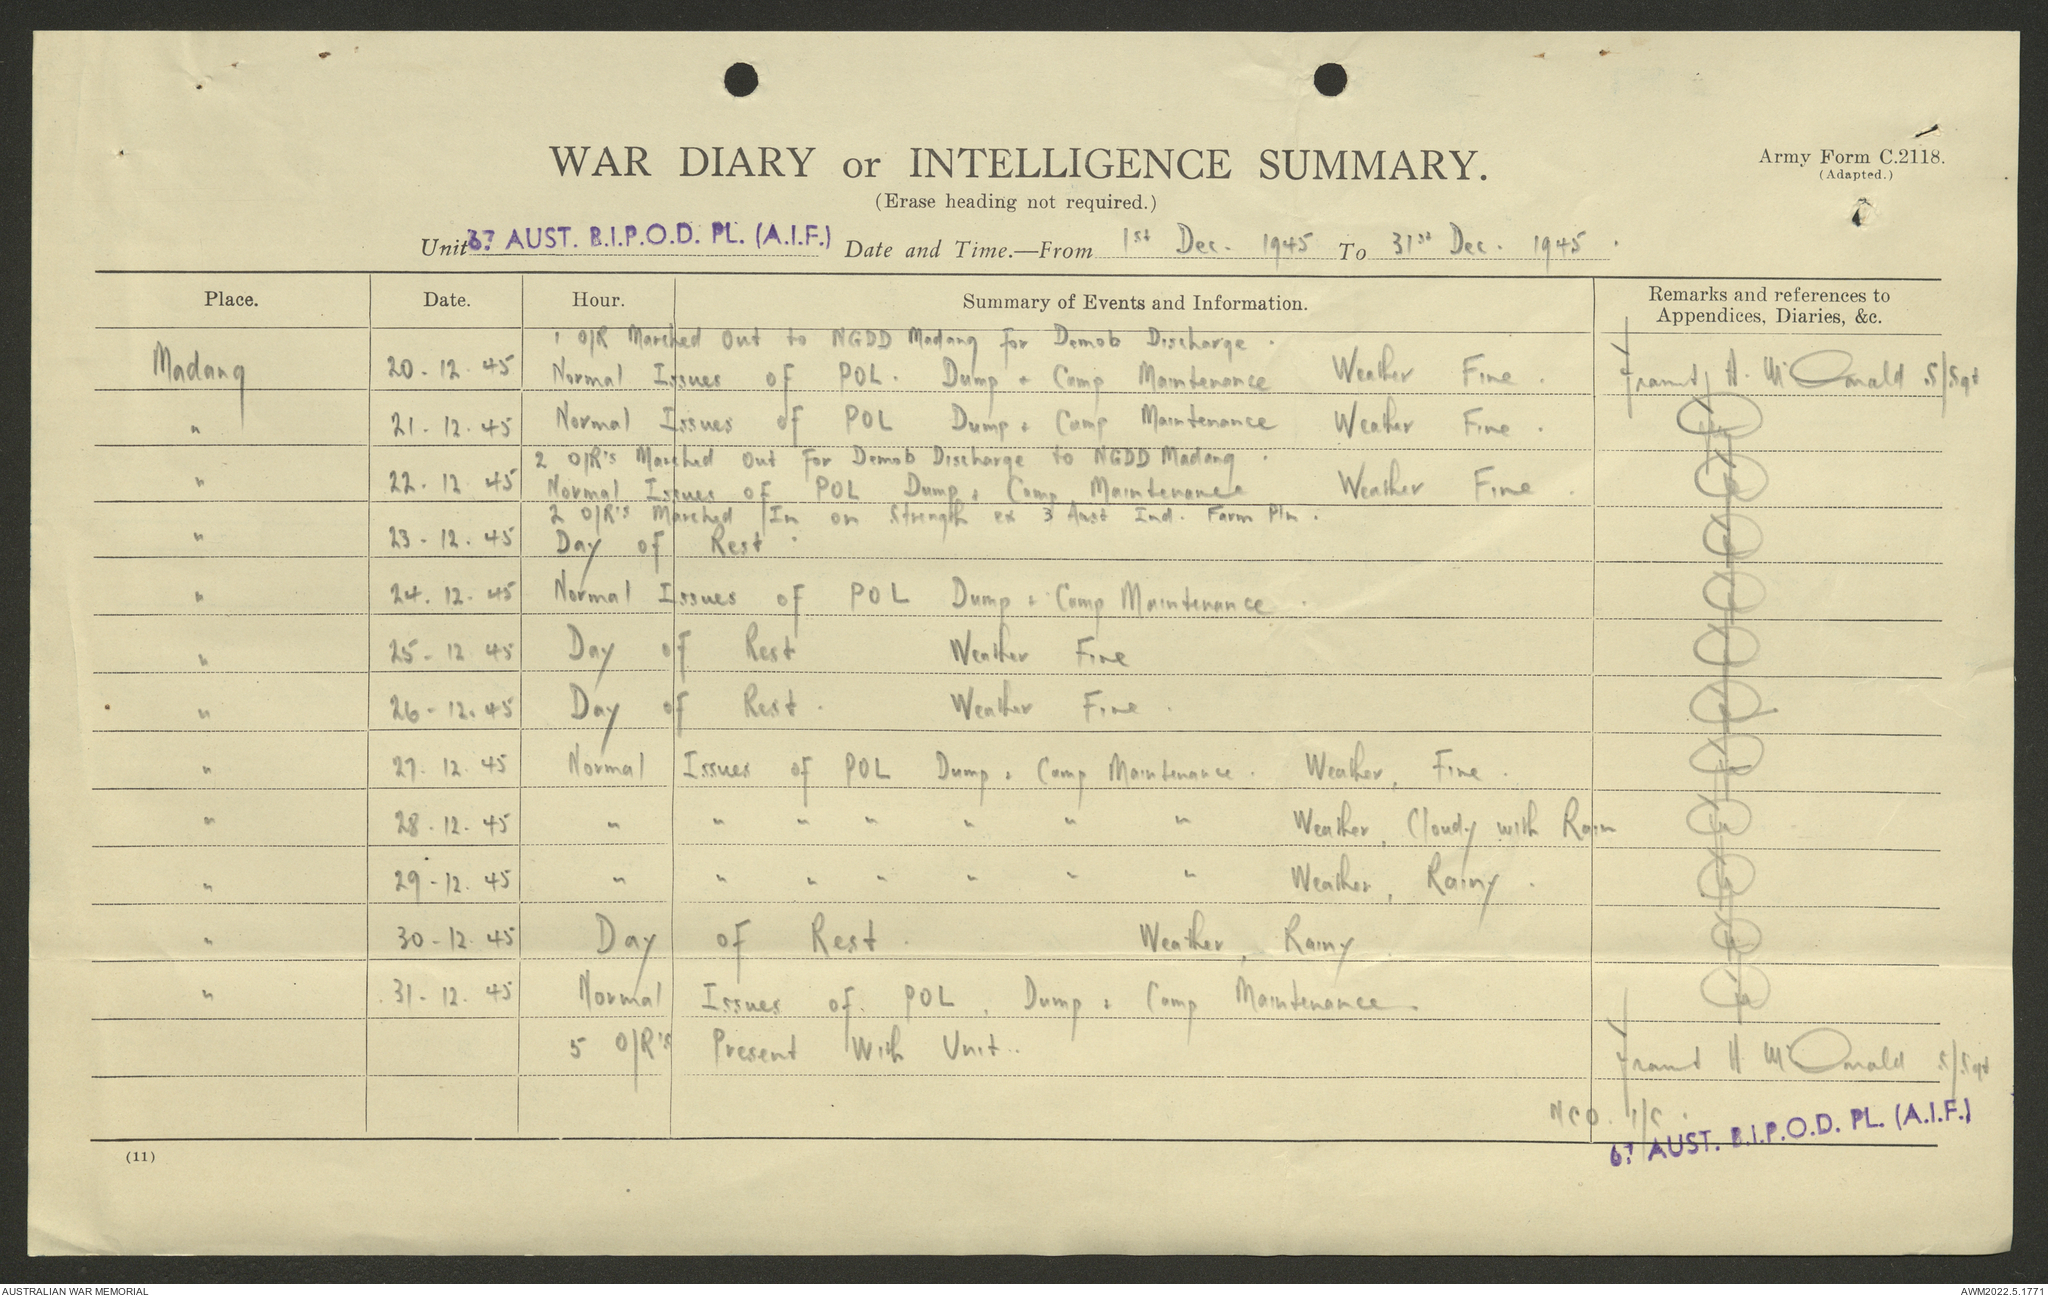 WAR DIARY or INTELLIGENCE SUMMARY.
Army Form C.2118.
(Adapted.)
(Erase heading not required.)
Unit 67 AUST. B.I.P.O.D. PL. (A.I.F.) Date and Time.—From 1st Dec. 1945 To 31st Dec. 1945.
Place. Date. Hour. Summary of Events and Information. Remarks and references to Appendices, Diaries, &c.
1 O/R Marched Out to NGDD Madang for Demob Discharge.
Madang 20-12-45 Normal Issues of POL. Dump & Camp Maintenance Weather Fine. H. McDonald S/Sgt
" 21-12-45 Normal Issues of POL Dump & Camp Maintenance Weather Fine.
2 O/R's Marched Out for Demob Discharge to NGDD Madang.
" 22-12-45 Normal Issues of POL Dump & Camp Maintenance Weather Fine.
2 O/R's Marched In on Strength ex 3 Aust Ind. Farm Pln.
" 23-12-45 Day of Rest.
" 24.12.45 Normal Issues of POL Dump & Camp Maintenance.
" 25-12 45 Day of Rest Weather Fine
" 26-12.45 Day of Rest. Weather Fine.
" 27.12.45 Normal Issues of POL Dump & Camp Maintenance. Weather, Fine.
" 28.12.45 " " " " " " " Weather, Cloudy with Rain
" 29-12.45 " " " " " " " Weather, Rainy.
" 30-12.45 Day of Rest. Weather, Rainy
" 31-12.45 Normal Issues of POL, Dump & Camp Maintenance
5 O/R's Present With Unit.. H McDonald S/Sgt
NCO. I/C.
67 AUST. B.I.P.O.D. PL. (A.I.F.)
(11)
AUSTRALIAN WAR MEMORIAL
AWM2022.5.1771